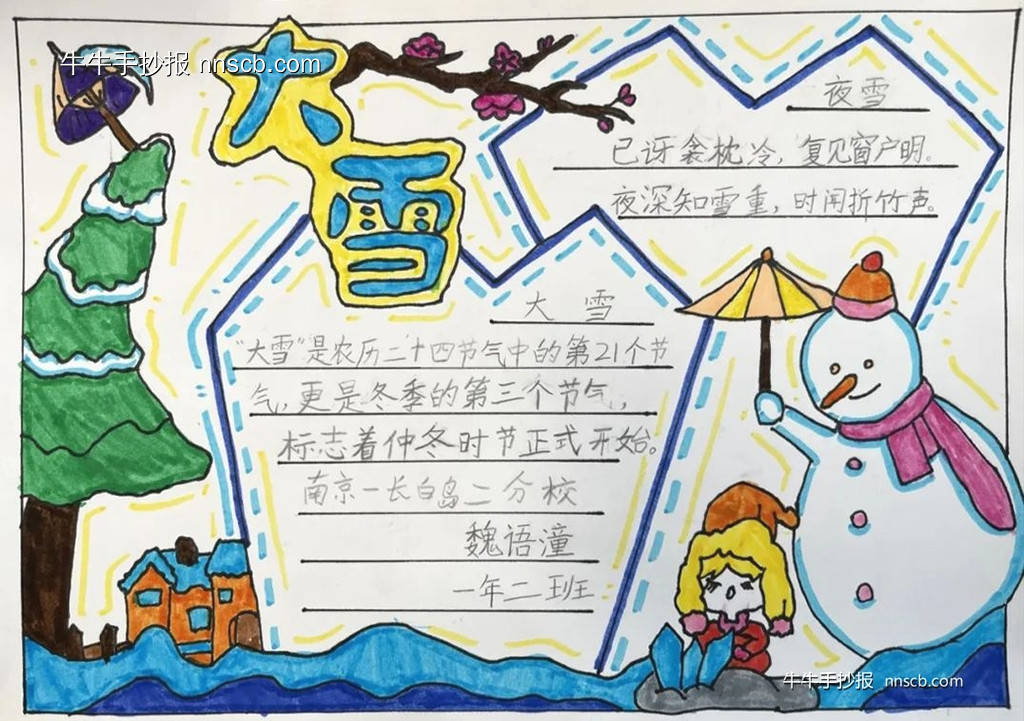 牛牛手抄报 nnscb.com
大雪
夜雪
已讶衾枕冷，复见窗户明。
夜深知雪重，时闻折竹声。
大雪
"大雪"是农历二十四节气中的第21个节
气，更是冬季的第三个节气，
标志着仲冬时节正式开始。
南京一长白岛二分校
魏语潼
一年二班
牛牛手抄报 nnscb.com